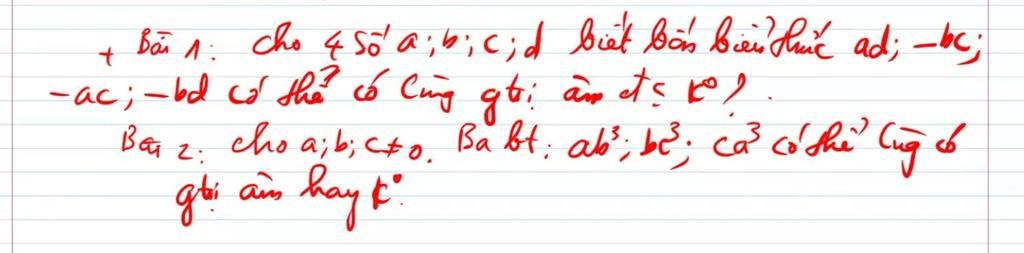 + Bài 1: Cho 4 số a; b; c; d biết bốn biểu thức ad; -bc;
-ac; -bd có thể có cùng gtrị âm đc k°?
Bài 2: Cho a; b; c ≠ 0. Ba bt: ab³; bc³; ca³ có thể cùng có
gtrị âm hay k°.